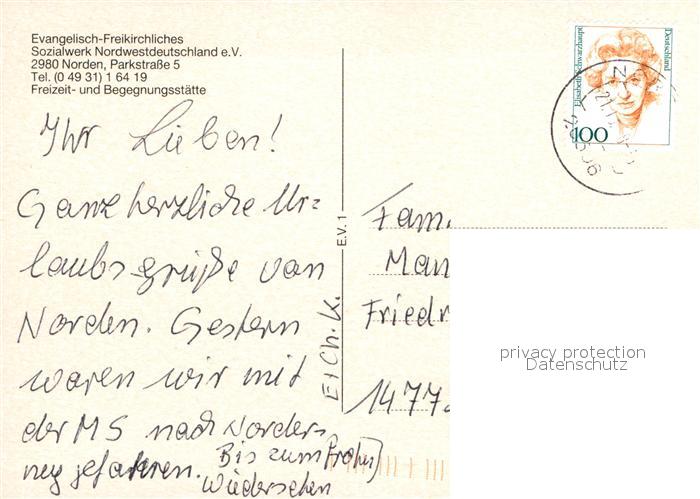 Evangelisch-Freikirchliches
Sozialwerk Nordwestdeutschland e.V.
2980 Norden, Parkstraße 5
Tel. (0 49 31) 1 64 19
Freizeit- und Begegnungsstätte
Ihr Lieben!
Ganz herzliche Ur=
laubsgrüße von
Norden. Gestern
waren wir mit
der MS nach Norder-
ney gefahren. Bis zum frohen
Wiedersehen
E+Ch.K.
E.V. 1
Elisabeth Schwarzhaupt
Deutschland
100
Fam.
Man
Friedr
1477
privacy protection
Datenschutz